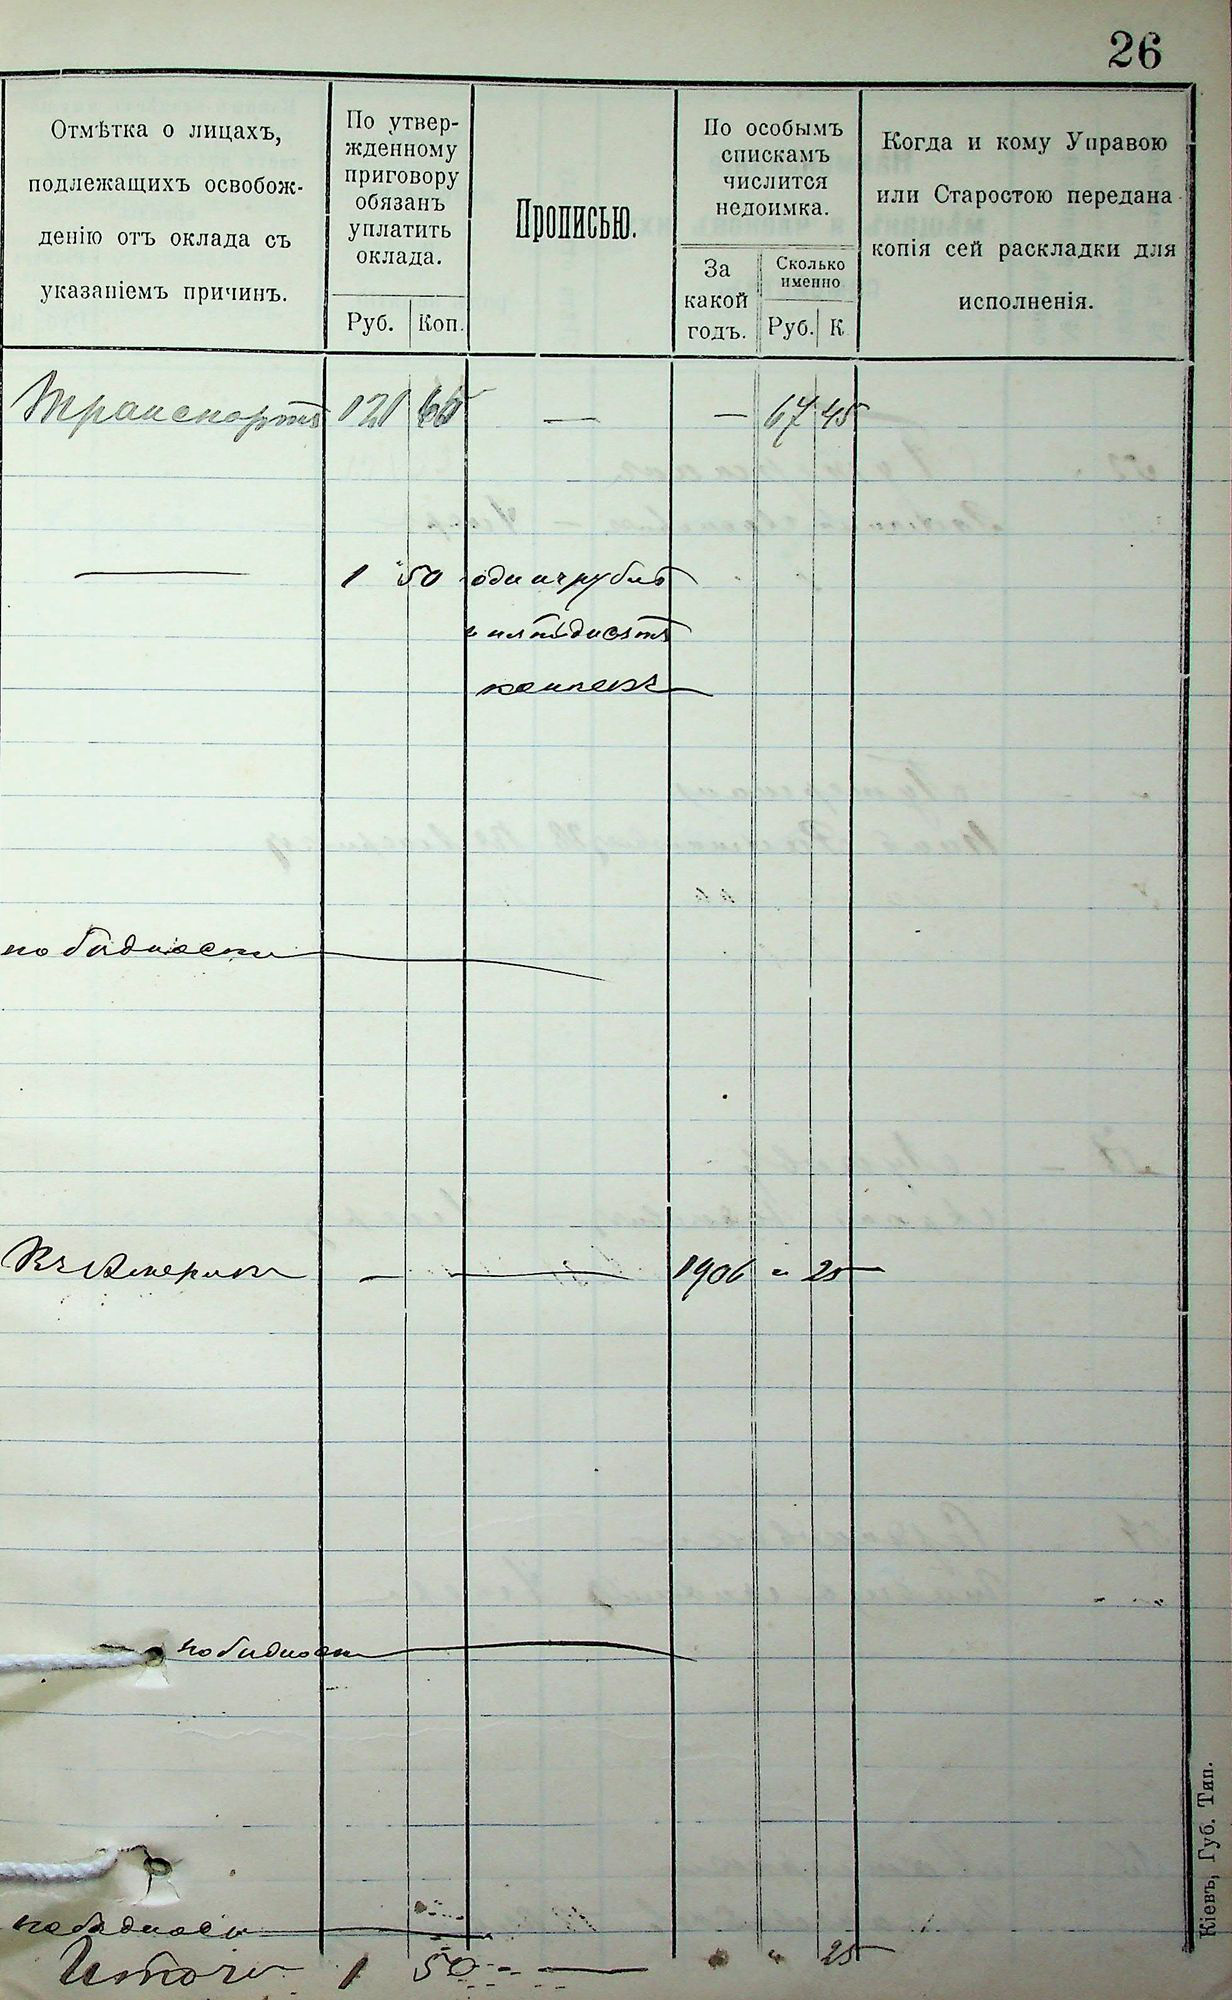 26
Отмѣтка о лицахъ,
подлежащихъ освобож-
денію отъ оклада съ
указаніемъ причинъ.
По утвер-
жденному
приговору
обязанъ
уплатить
оклада.
Руб. Коп.
Прописью.
По особымъ
спискамъ
числится
недоимка.
За
какой
годъ.
Сколько
именно
Руб. К
Когда и кому Управою
или Старостою передана
копія сей раскладки для
исполненія.
Транспортъ 121 65 — — 67 45
— 1 50 одинъ рубль
и пятьдесятъ
копеекъ
по бѣдности
Въ Америкѣ — — 1906 " 25
по бѣдности
по бѣдности
Итого 1 50 — " " 25
Кіевъ, Губ. Тип.